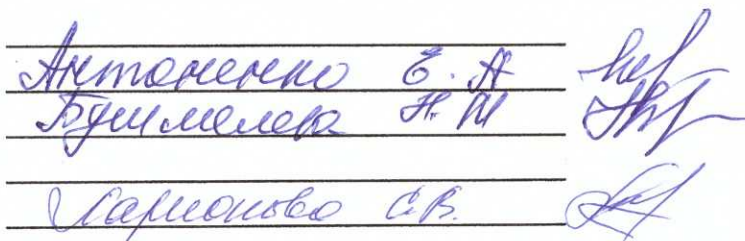 Антоненко Е. А
Бушмелева Н. М
Ларионова С.В.